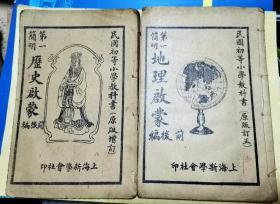 民國初等小學教科書(原版訂正)
第一簡明
地理啟蒙
前後編
上海新學會社印
民國初等小學教科書(原版增訂)
第一簡明
歷史啟蒙
前後編
上海新學會社印